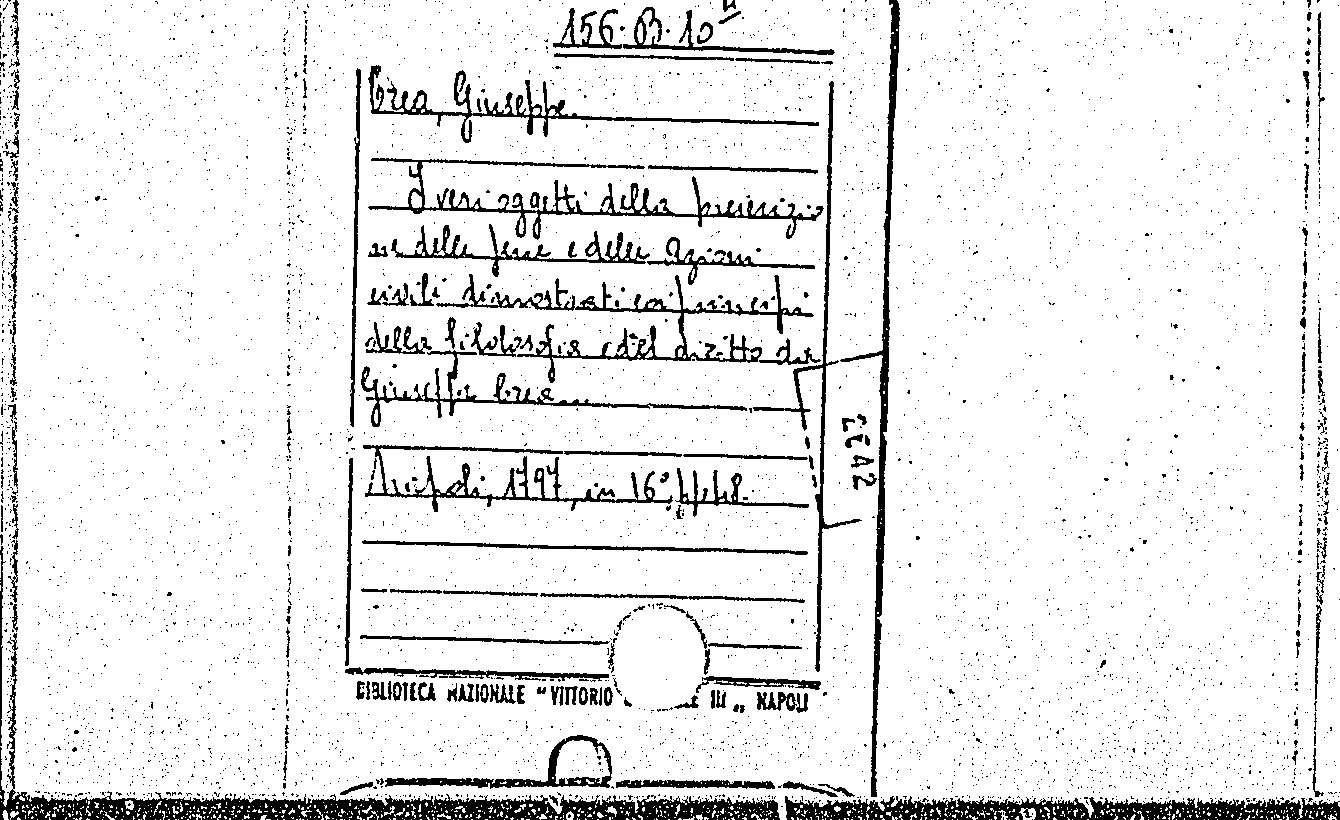 156.B.10
Crea, Giuseppe.
I veri oggetti della prescrizio
ne delle pene e delle Azioni
civili dimostrati coi principi
della filosofia e del diritto da
Giuseppe Crea...
Napoli, 1797, in 16°, pp. 48.
BIBLIOTECA NAZIONALE "VITTORIO E III „ NAPOLI